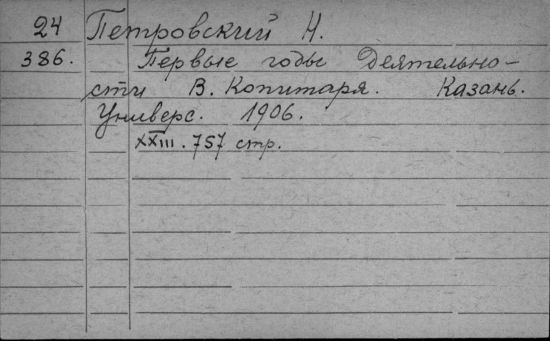 24 Петровский Н.
386. Первые годы деятельно-
сти В. Копитаря. Казань.
Универс. 1906.
XXIII. 757 стр.